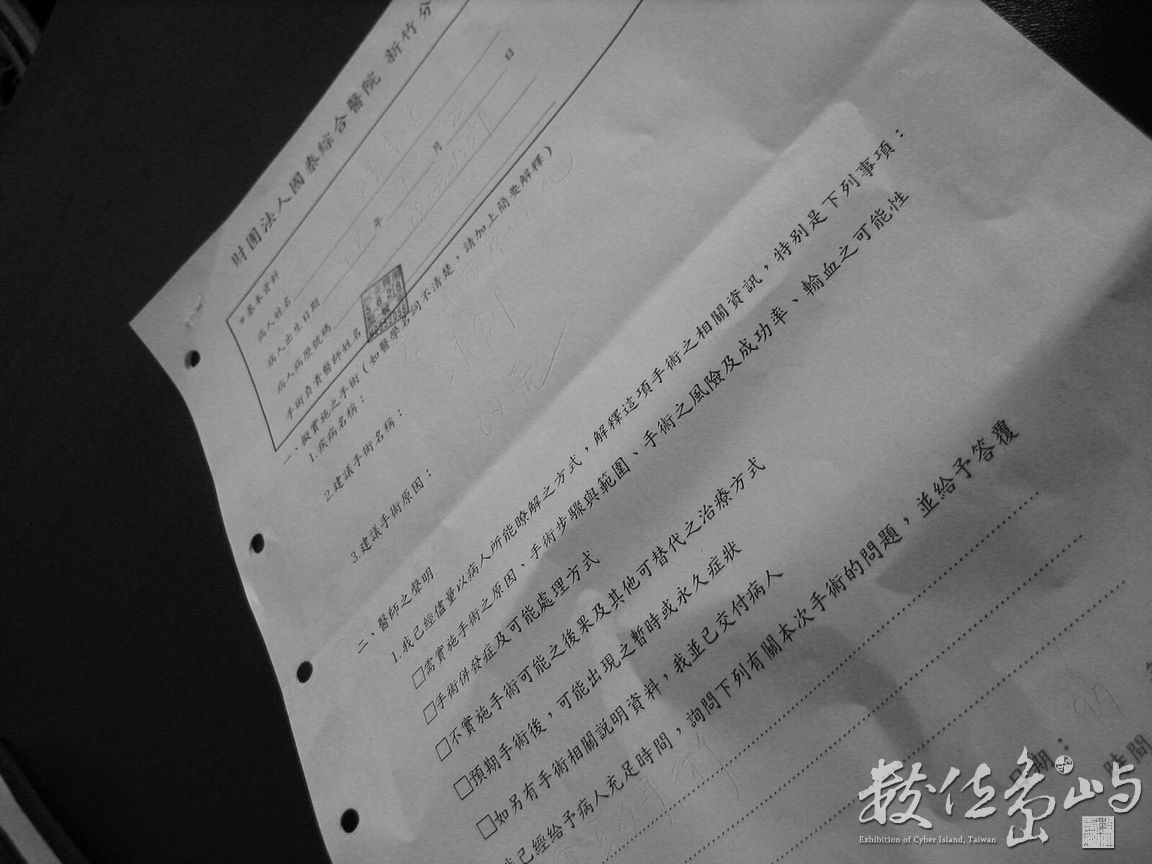 財團法人國泰綜合醫院 新竹分
*基本資料
病人姓名
病人出生日期 年 月 日
病人病歷號碼
手術負責醫師姓名
一、擬實施之手術(如醫學名詞不清楚,請加上簡要解釋)
1.疾病名稱:
2.建議手術名稱:
3.建議手術原因:
二、醫師之聲明
1.我已經儘量以病人所能瞭解之方式,解釋這項手術之相關資訊,特別是下列事項:
□需實施手術之原因、手術步驟與範圍、手術之風險及成功率、輸血之可能性
□手術併發症及可能處理方式
□不實施手術可能之後果及其他可替代之治療方式
□預期手術後,可能出現之暫時或永久症狀
□如另有手術相關說明資料,我並已交付病人
我已經給予病人充足時間,詢問下列有關本次手術的問題,並給予答覆
日期:
時間
數位島嶼
Exhibition of Cyber Island, Taiwan